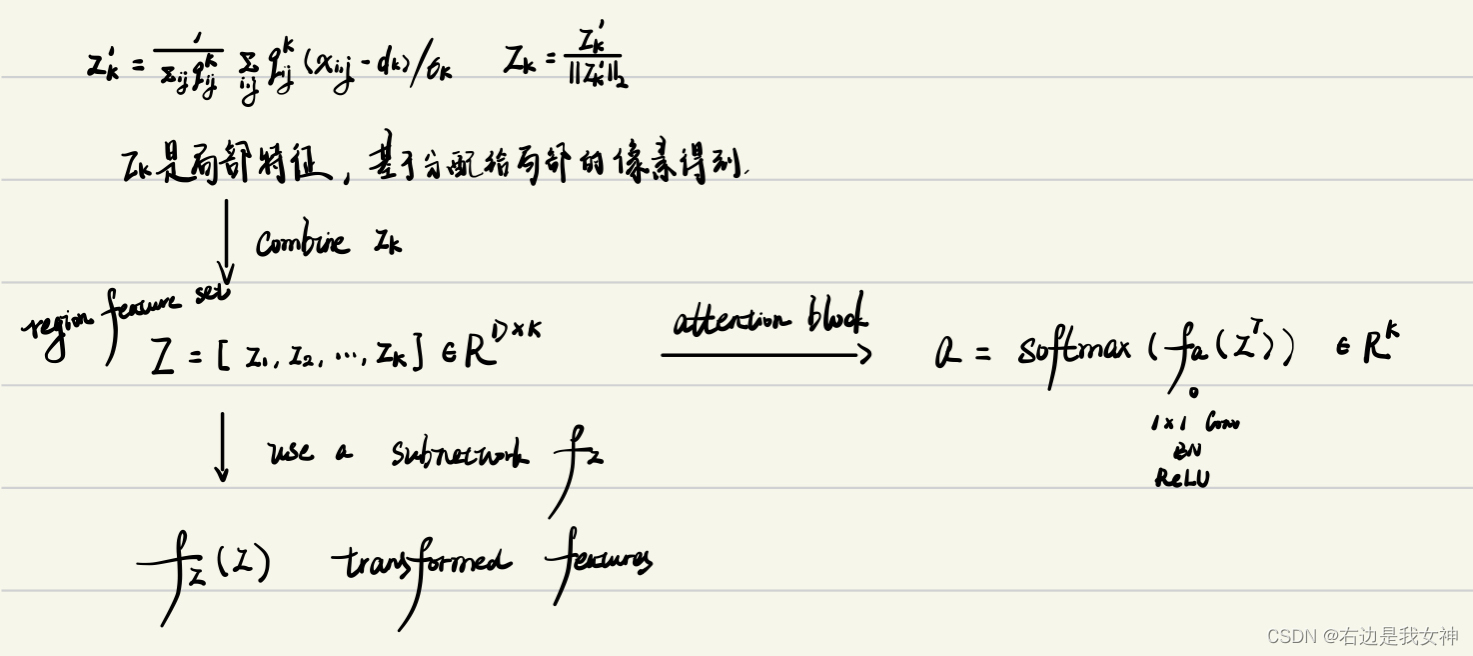 z'ₖ = 1/(Σᵢⱼ qᵢⱼᵏ) Σᵢⱼ qᵢⱼᵏ (xᵢ,ⱼ - dₖ)/σₖ    Zₖ = Z'ₖ/||Z'ₖ||₂
Zₖ是局部特征，基于分配给局部的像素得到.
combine Zₖ
region feature set
Z = [ z₁, z₂, ···, zₖ ] ∈ R^{D×K}
attention block
a = softmax (fₐ(Zᵀ)) ∈ Rᴷ
1×1 Conv
BN
ReLU
use a subnetwork f_z
f_z(Z) transformed features
CSDN @右边是我女神